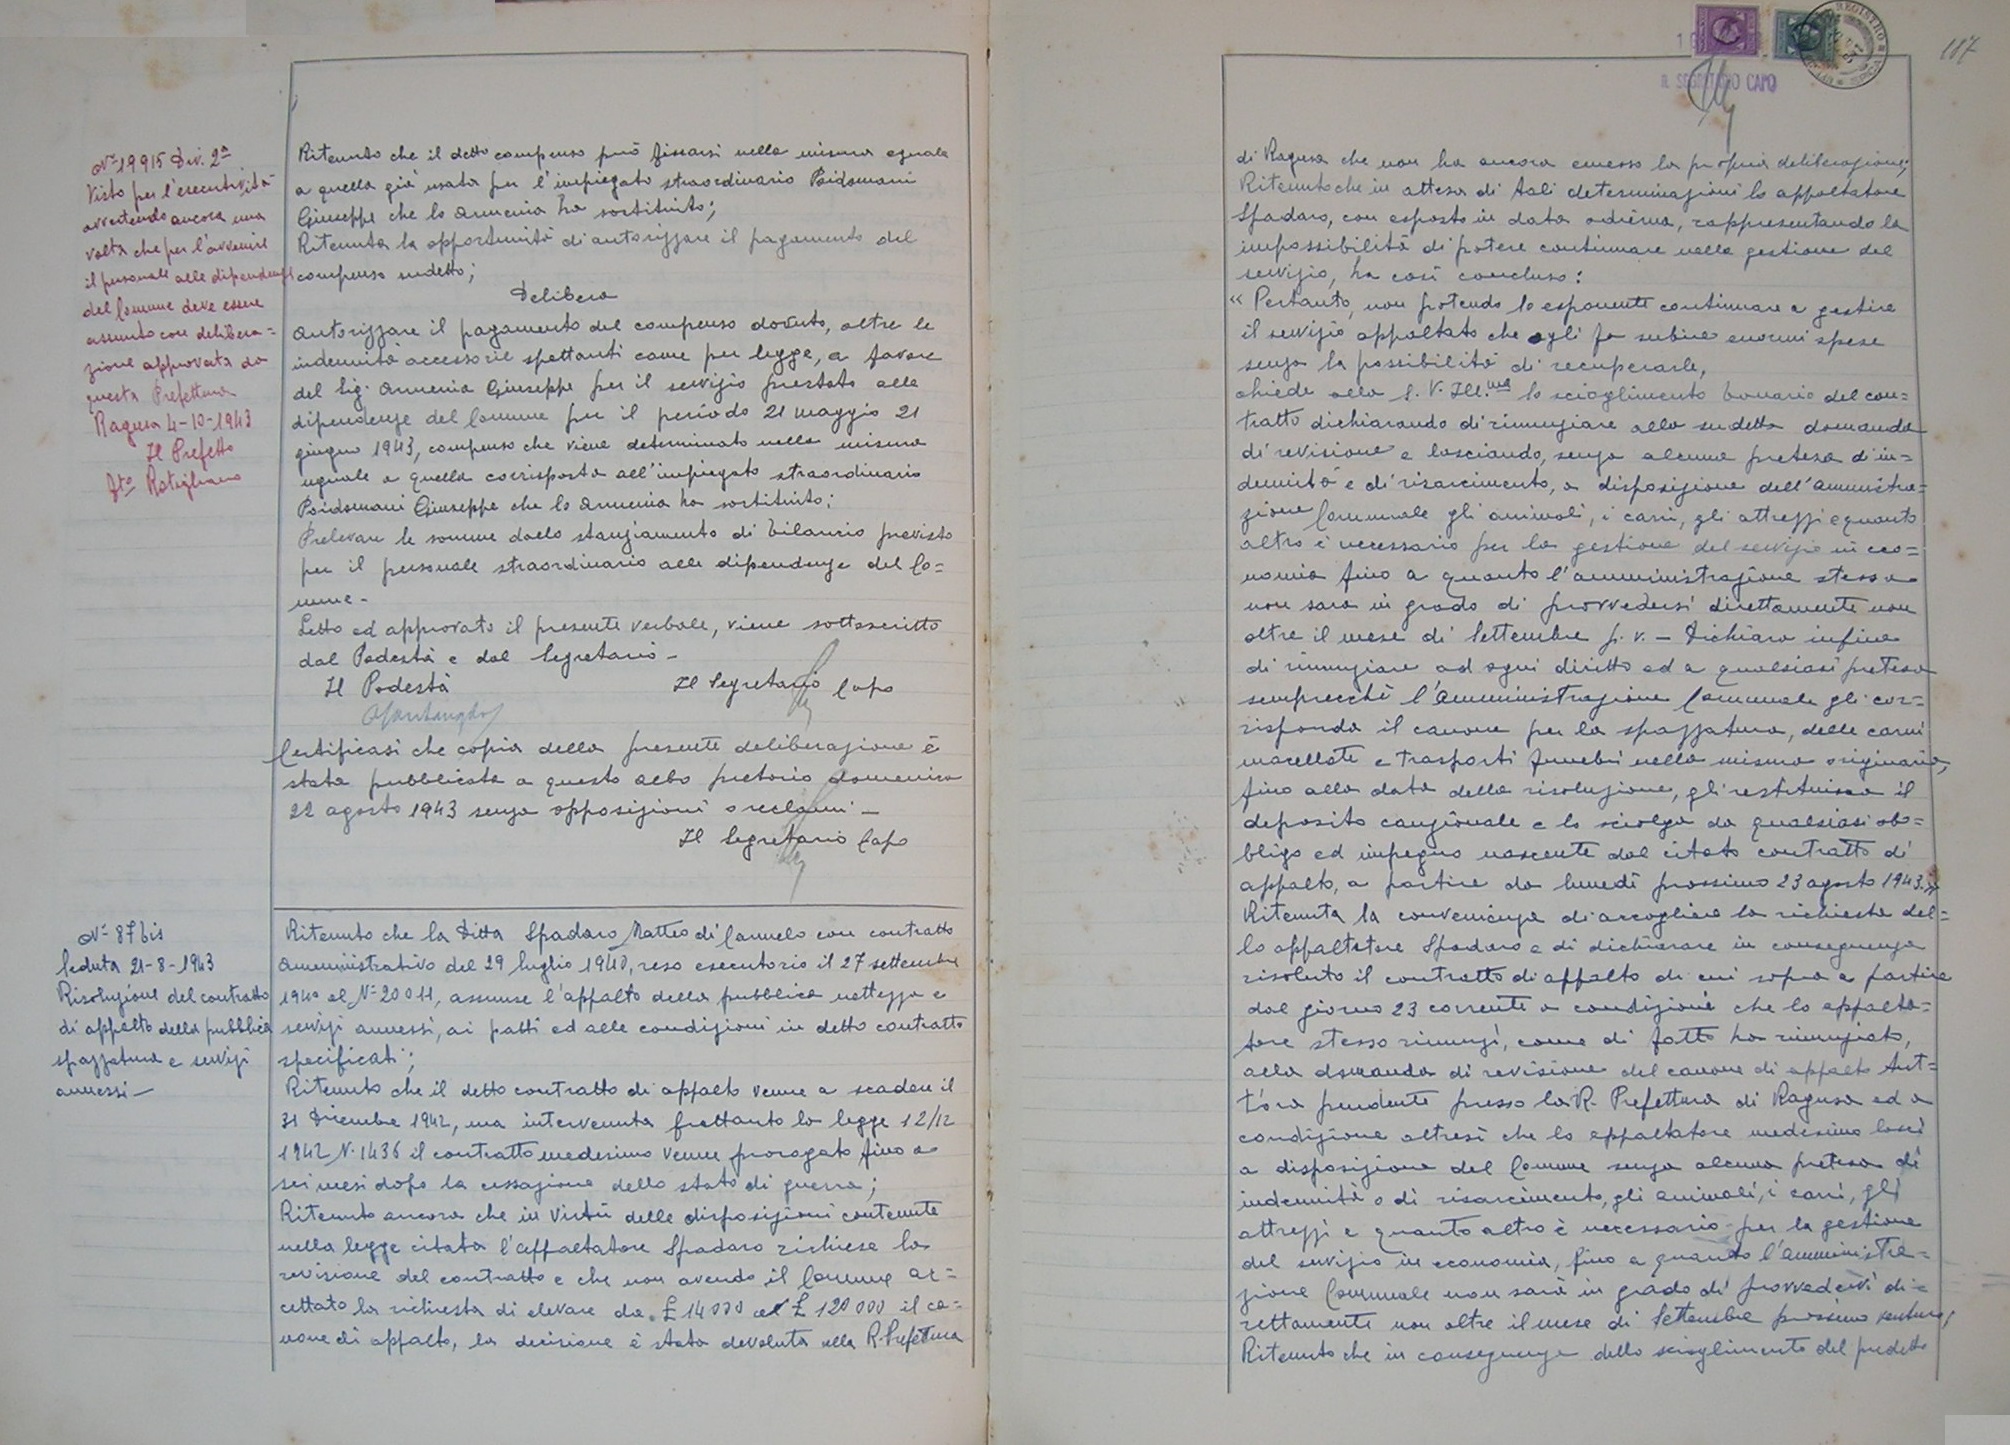 Nº 19915 Div. 2ª
Visto per l'esecutività
avvertendo ancora una
volta che per l'avvenire
il personale alle dipendenze
del Comune deve essere
assunto con delibera=
zione approvata da
questa Prefettura
Ragusa 4-10-1943
Il Prefetto
Fto
Ritenuto che il detto compenso può fissarsi nella misura eguale
a quella già usata per l'impiegato straordinario Poidomani
Giuseppe che lo Armenia ha sostituito;
Ritenuta la opportunità di autorizzare il pagamento del
compenso sudetto;
Delibera
Autorizzare il pagamento del compenso dovuto, oltre le
indennità accessorie spettanti come per legge, a favore
del Sig. Armenia Giuseppe per il servizio prestato alle
dipendenze del Comune per il periodo 21 maggio 21
giugno 1943, compenso che viene determinato nella misura
uguale a quella corrisposta all'impiegato straordinario
Poidomani Giuseppe che lo Armenia ha sostituito;
Prelevare le somme dallo stanziamento di bilancio previsto
per il personale straordinario alle dipendenze del Co=
mune -
Letto ed approvato il presente verbale, viene sottoscritto
dal Podestà e dal Segretario -
Il Podestà Il Segretario Capo
Certificasi che copia della presente deliberazione è
stata pubblicata a questo albo pretorio domenica
22 agosto 1943 senza opposizioni o reclami -
Il Segretario Capo
Nº 87 bis
Seduta 21-8-1943
Risoluzione del contratto
di appalto della pubblica
spazzatura e servizi
annessi -
Ritenuto che la Ditta Spadaro Matteo di Carmelo con contratto
amministrativo del 29 luglio 1940, reso esecutorio il 27 settembre
1940 al Nº 20011, assunse l'appalto della pubblica nettezza e
servizi annessi, ai patti ed alle condizioni in detto contratto
specificati;
Ritenuto che il detto contratto di appalto venne a scadere il
31 Dicembre 1942, ma intervenuta frattanto la legge 12/12
1942 N. 1436 il contratto medesimo venne prorogato fino a
sei mesi dopo la cessazione dello stato di guerra;
Ritenuto ancora che in virtù delle disposizioni contenute
nella legge citata l'appaltatore Spadaro richiese la
revisione del contratto e che non avendo il Comune ac=
cettato la richiesta di elevare da £ 14000 a £ 120000 il ca=
none di appalto, la decisione è stata devoluta alla R. Prefettura
187
IL SEGRETARIO CAPO
di Ragusa che non ha ancora emesso la propria deliberazione;
Ritenuto che in attesa di tali determinazioni lo appaltatore
Spadaro, con esposto in data odierna, rappresentando la
impossibilità di potere continuare nella gestione del
servizio, ha così concluso:
« Pertanto, non potendo lo esponente continuare a gestire
il servizio appaltato che egli fa subire enormi spese
senza la possibilità di recuperarle,
chiede alla S. V. Ill.ma lo scioglimento bonario del con=
tratto dichiarando di rinunziare alla sudetta domanda
di revisione e lasciando, senza alcuna pretesa d'in=
dennità e di risarcimento, a disposizione dell'Amministra=
zione Comunale gli animali, i carri, gli attrezzi e quanto
altro è necessario per la gestione del servizio in eco=
nomia fino a quanto l'amministrazione stessa
non sarà in grado di provvedersi direttamente non
oltre il mese di Settembre p. v. - Dichiara infine
di rinunziare ad ogni diritto ed a qualsiasi pretesa
semprecchè l'Amministrazione Comunale gli cor=
risponda il canone per la spazzatura, delle carni
macellate e trasporti funebri nella misura originaria,
fino alla data della risoluzione, gli restituisca il
deposito cauzionale e lo sciolga da qualsiasi ob=
bligo ed impegno nascente dal citato contratto di
appalto, a partire da lunedì prossimo 23 agosto 1943.»
Ritenuta la convenienza di accogliere la richiesta del=
lo appaltatore Spadaro e di dichiarare in conseguenza
risoluto il contratto di appalto di cui sopra a partire
dal giorno 23 corrente a condizione che lo appalta=
tore stesso rinunzi, come di fatto ha rinunziato,
alla domanda di revisione del canone di appalto tut=
t'ora pendente presso la R. Prefettura di Ragusa ed a
condizione altresì che lo appaltatore medesimo lasci
a disposizione del Comune senza alcuna pretesa di
indennità o di risarcimento, gli animali, i carri, gli
attrezzi e quanto altro è necessario per la gestione
del servizio in economia, fino a quando l'amministra=
zione Comunale non sarà in grado di provvedervi di=
rettamente non oltre il mese di Settembre prossimo venturo;
Ritenuto che in conseguenza dello scioglimento del predetto